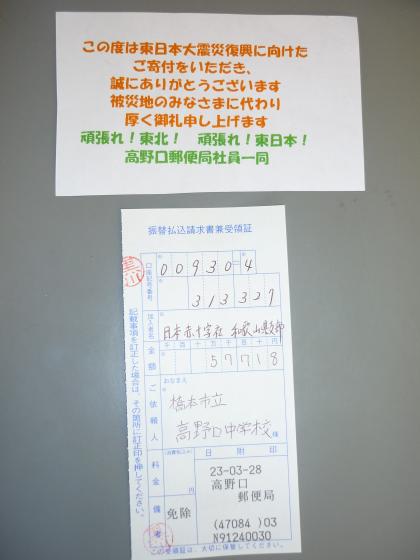 この度は東日本大震災復興に向けた
ご寄付をいただき、
誠にありがとうございます
被災地のみなさまに代わり
厚く御礼申し上げます
頑張れ！東北！　頑張れ！東日本！
高野口郵便局社員一同
振替払込請求書兼受領証
口座記号番号
00930=4
313327
加入者名
日本赤十字社 和歌山県支部
金額
千百十万千百十円
57718
ご依頼人
おなまえ
橋本市立
高野口中学校 様
料金
(消費税込み)
円
備考
免除
日附印
23-03-28
高野口
郵便局
(47084)03
N91240030
記載事項を訂正した場合は、その箇所に訂正印を押してください。
この受領証は、大切に保管してください。